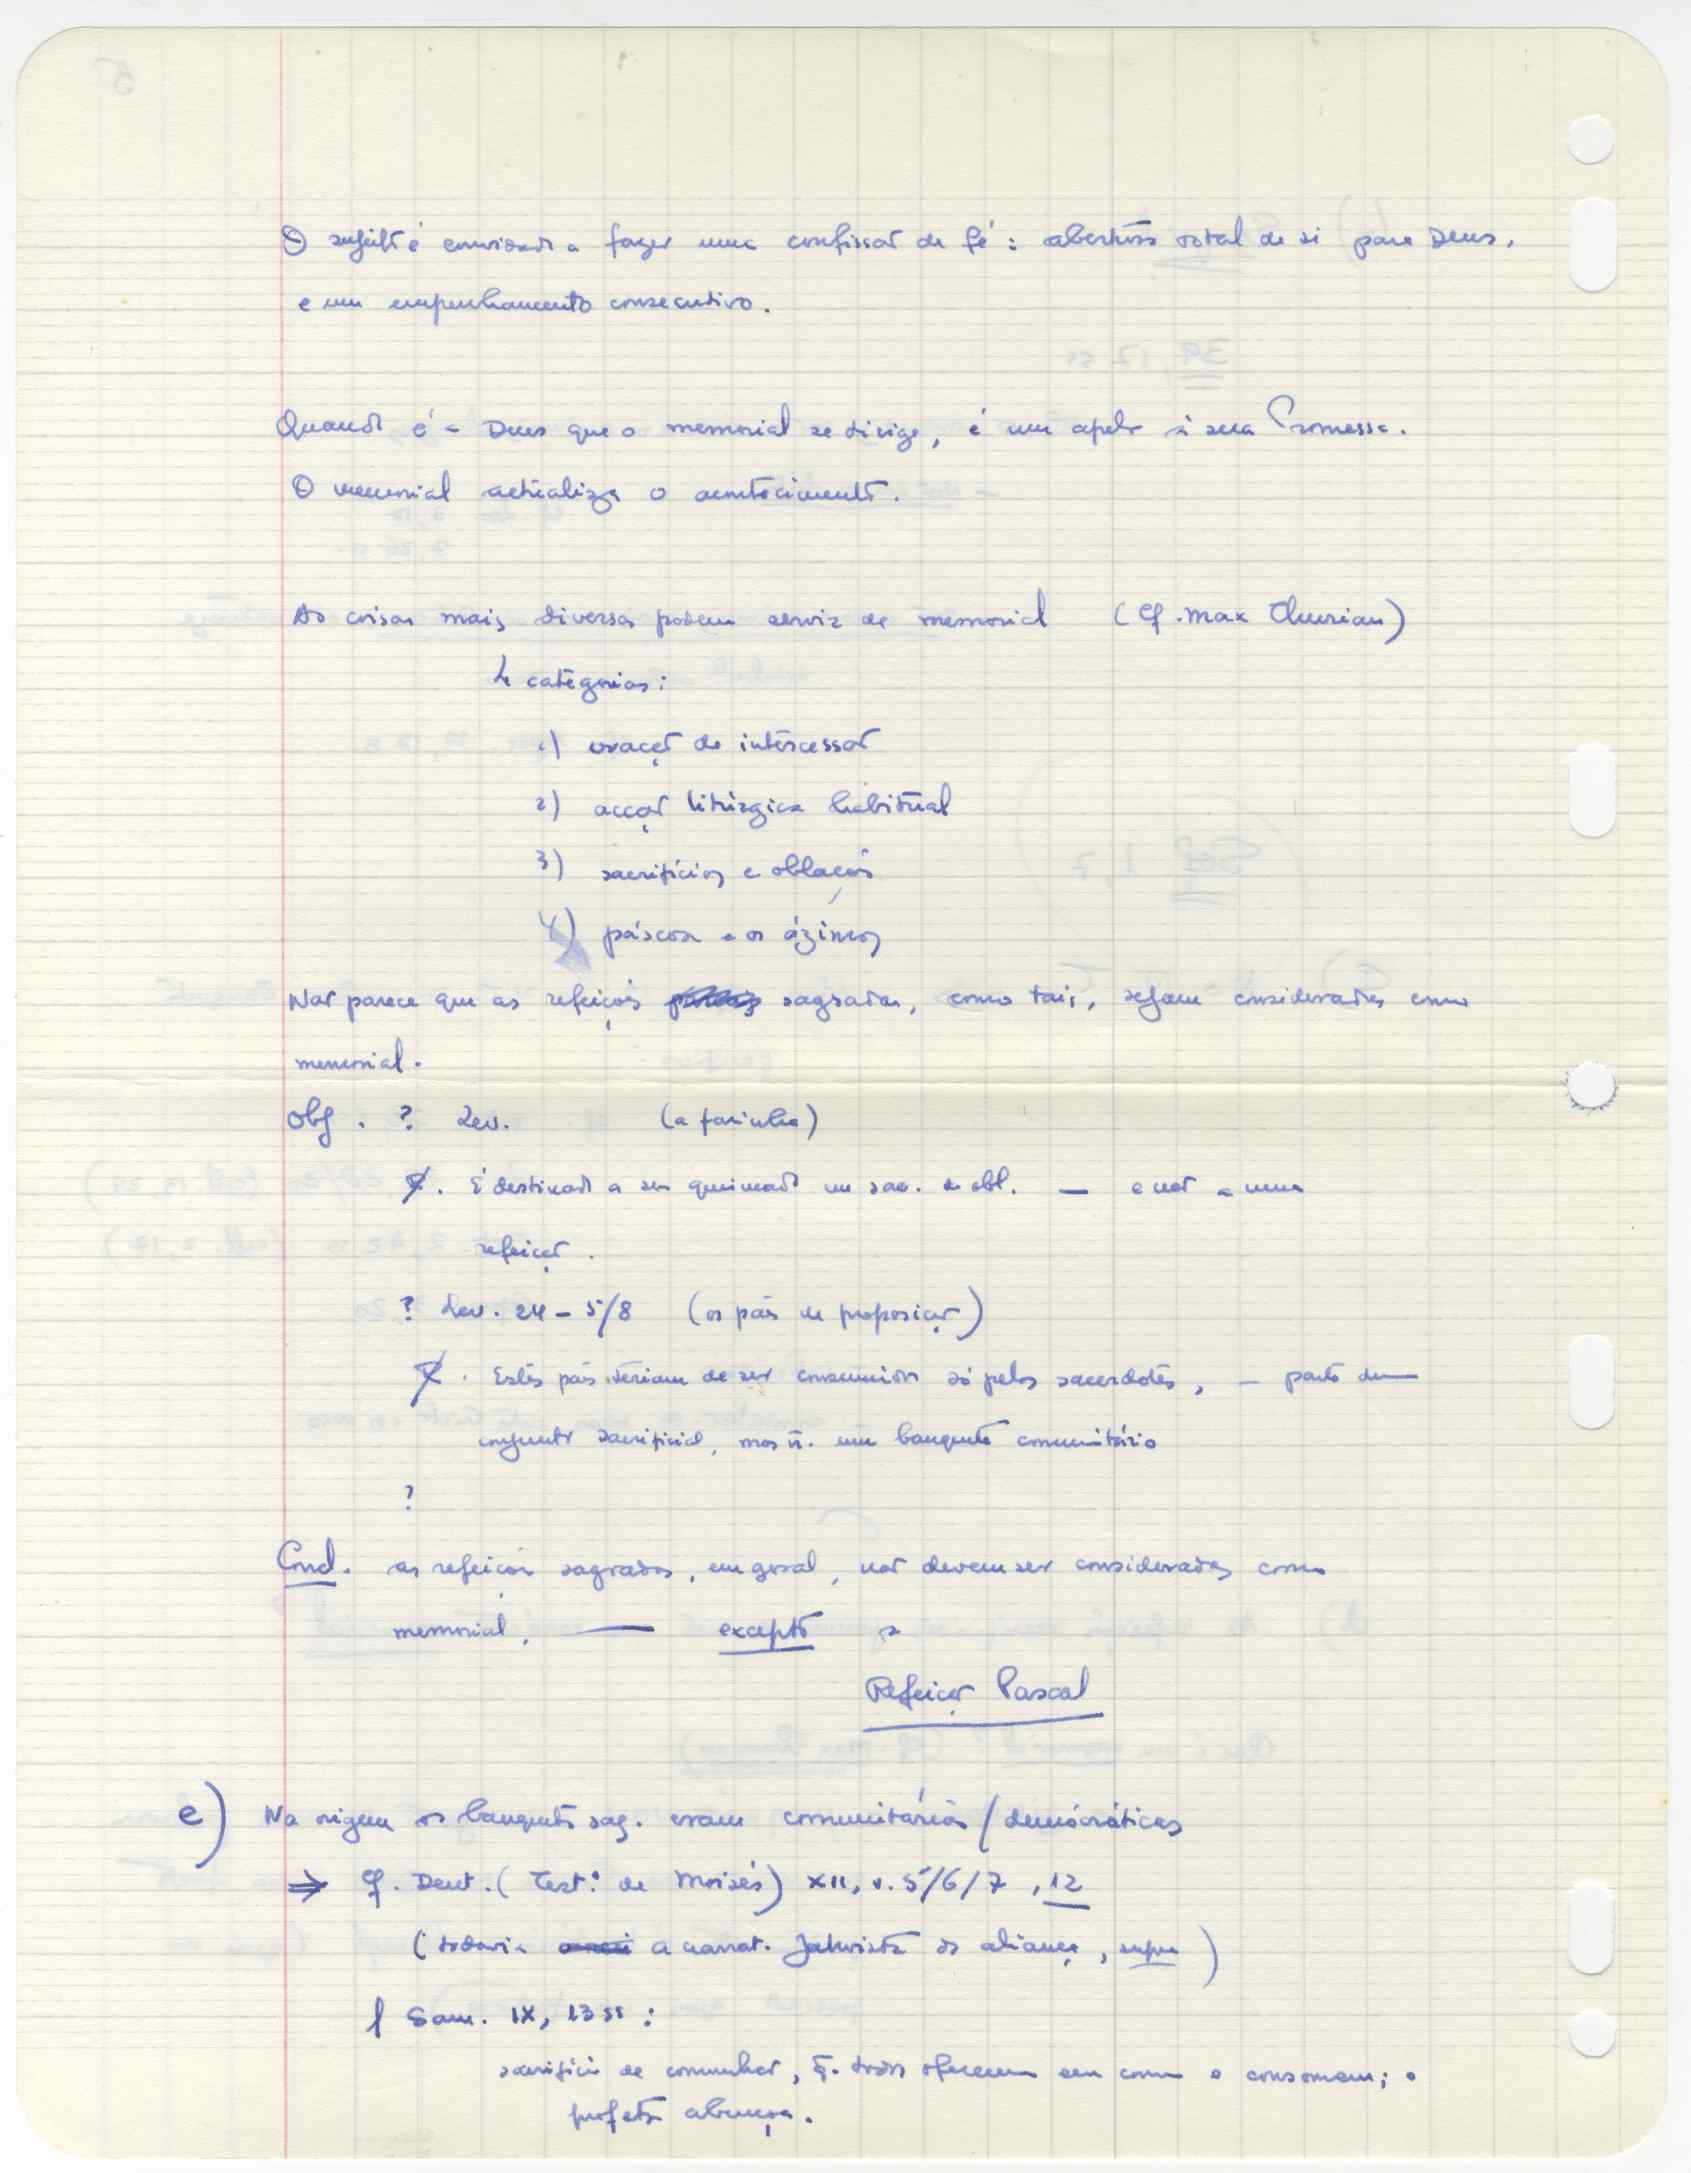 O sujeito é convidado a fazer uma confissão de fé: abertura total de si para Deus,
e um empenhamento consecutivo.
Quando é a Deus que o memorial se dirige, é um apelo à sua Promessa.
O memorial actualiza o acontecimento.
As coisas mais diversas podem servir de memorial (Cf. Max Thurian)
4 categorias:
1) oração de intercessão
2) acção litúrgica habitual
3) sacrifícios e oblações
4) páscoa e os ázimos
Não parece que as refeições sagradas, como tais, sejam consideradas como
memorial.
Obj. ? Lev. (a farinha)
R. É destinado a ser queimado em sac. e obl. — e não a uma
refeição.
? Lev. 24-5/8 (os pães de proposição)
R. Estes pães teriam de ser consumidos só pelos sacerdotes, — parte dum
conjunto sacrificial, mas ñ. um banquete comunitário
?
Concl. as refeições sagradas, em geral, não devem ser consideradas como
memorial, — excepto a
Refeição Pascal
e) Na origem os banquetes sag. eram comunitários/democráticos
⇒ Cf. Deut. (Test.º de Moisés) XII, v. 5/6/7, 12
(todavia a narrat. Jahvista da aliança, supra)
I Sam. IX, 13 ss:
sacrifício de comunhão, q. todos oferecem em comum e consomem; o
profeta abençoa.